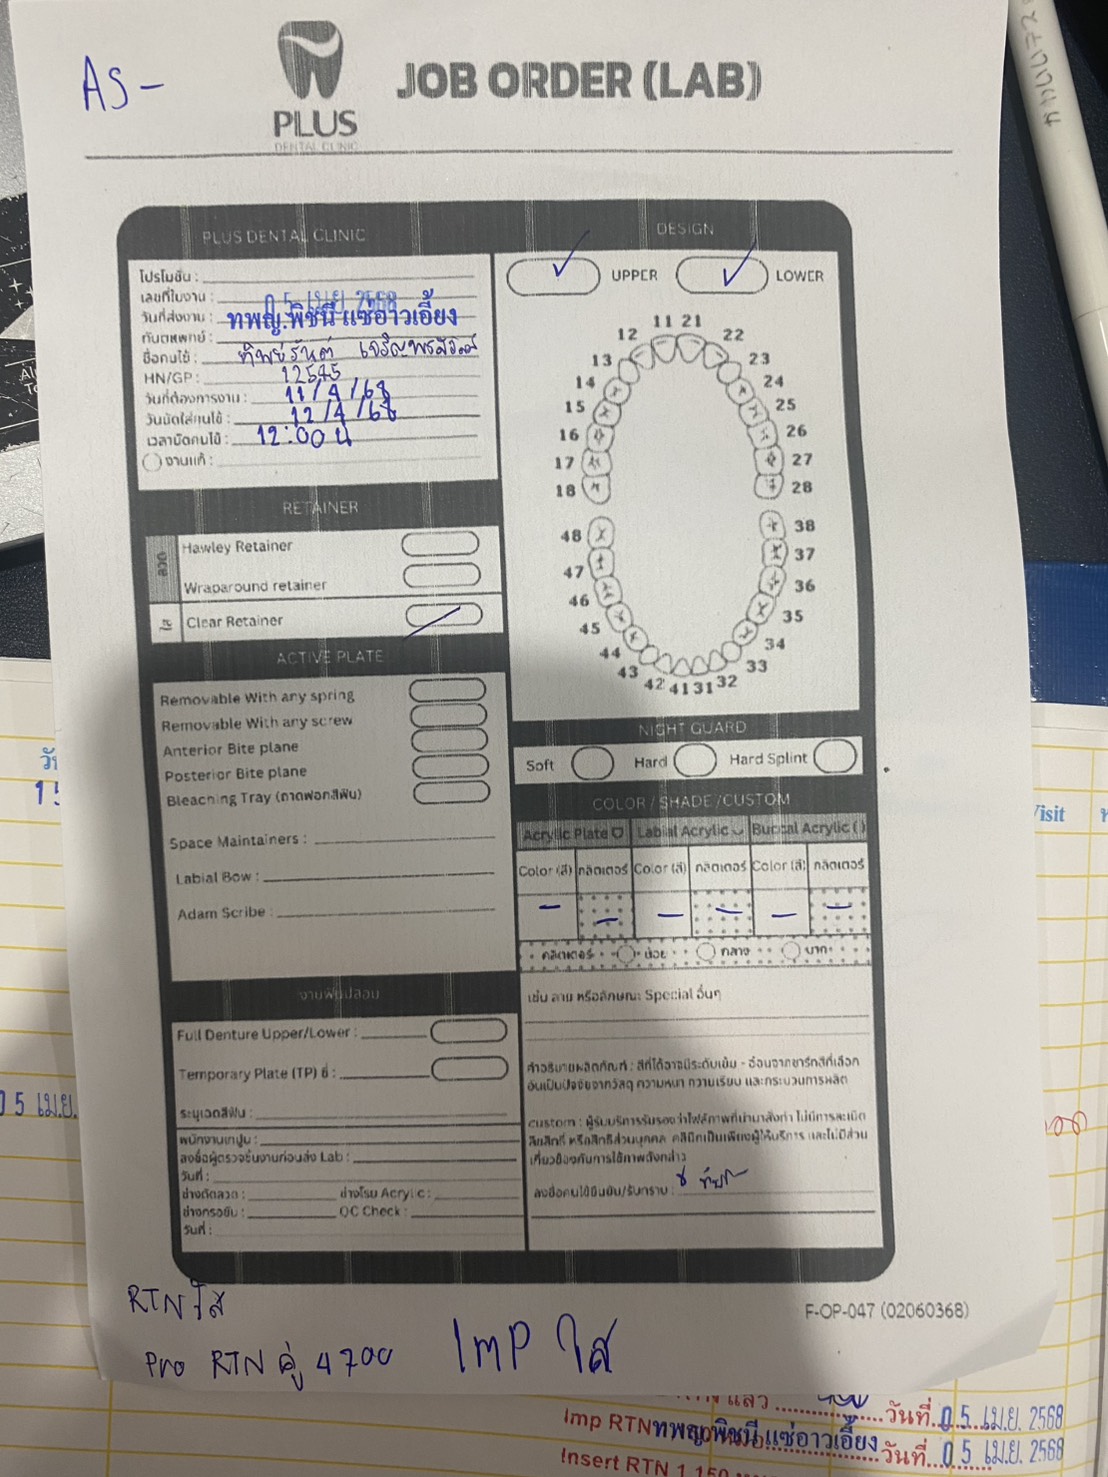 AS-
PLUS
DENTAL CLINIC
JOB ORDER (LAB)
PLUS DENTAL CLINIC
โปรโมชั่น :
เลขที่ใบงาน :
วันที่ส่งงาน : 0 5 เม.ย. 2568
ทันตแพทย์ : ทพญ.พิชนี แซ่อาวเอี้ยง
ชื่อคนไข้ :
HN/GP : 12545
วันที่ต้องการงาน : 11/4/68
วันนัดใส่คนไข้ : 12/4/68
เวลานัดคนไข้ : 12:00 น
งานแก้ :
RETAINER
ลวด
Hawley Retainer
Wraparound retainer
ใส
Clear Retainer
ACTIVE PLATE
Removable With any spring
Removable With any screw
Anterior Bite plane
Posterior Bite plane
Bleaching Tray (ถาดฟอกสีฟัน)
Space Maintainers :
Labial Bow :
Adam Scribe :
งานฟันปลอม
Full Denture Upper/Lower :
Temporary Plate (TP) ซี่ :
ระบุเฉดสีฟัน :
พนักงานเทปูน :
ลงชื่อผู้ตรวจชิ้นงานก่อนส่ง Lab :
วันที่ :
ช่างดัดลวด : ช่างโรย Acrylic :
ช่างกรอขัด : QC Check :
วันที่ :
DESIGN
UPPER
LOWER
11 21
12 22
13 23
14 24
15 25
16 26
17 27
18 28
48 38
47 37
46 36
45 35
44 34
43 33
42 41 31 32
NIGHT GUARD
Soft Hard Hard Splint
COLOR / SHADE /CUSTOM
Acrylic Plate Labial Acrylic Buccal Acrylic ( )
Color (สี) กลิตเตอร์ Color (สี) กลิตเตอร์ Color (สี) กลิตเตอร์
- - - - - -
กลิตเตอร์ น้อย กลาง มาก
เช่น ลาย หรือลักษณะ Special อื่นๆ
คำอธิบายผลิตภัณฑ์ : สีที่ได้อาจมีระดับเข้ม - อ่อนจากชาร์ทสีที่เลือก
อันเป็นปัจจัยจากวัสดุ ความหนา ความเรียบ และกระบวนการผลิต
custom : ผู้รับบริการรับรองว่าไฟล์ภาพที่นำมาสั่งทำ ไม่มีการละเมิด
ลิขสิทธิ์ หรือสิทธิส่วนบุคคล คลินิกเป็นเพียงผู้ให้บริการ และไม่มีส่วน
เกี่ยวข้องกับการใช้ภาพดังกล่าว
ลงชื่อคนไข้ยืนยัน/รับทราบ :
F-OP-047 (02060368)
RTN ใส
Pro RTN คู่ 4700
IMP ใส
15
Visit
0 5 เม.ย.
แล้ว วันที่ 0 5 เม.ย. 2568
Imp RTN ทพญ.พิชนี แซ่อาวเอี้ยง วันที่ 0 5 เม.ย. 2568
Insert RTN 1,150